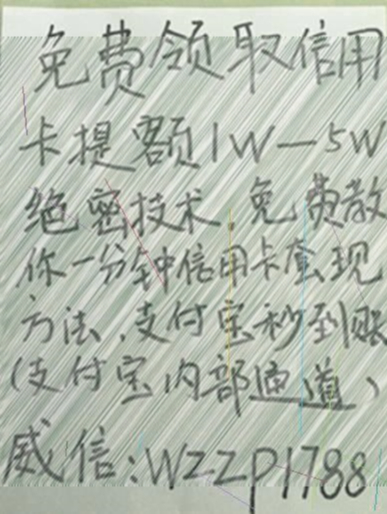 免费领取信用
卡提额1W—5W
绝密技术，免费教
你一分钟信用卡套现
方法，支付宝秒到账
(支付宝内部通道)
威信:WZZP1788